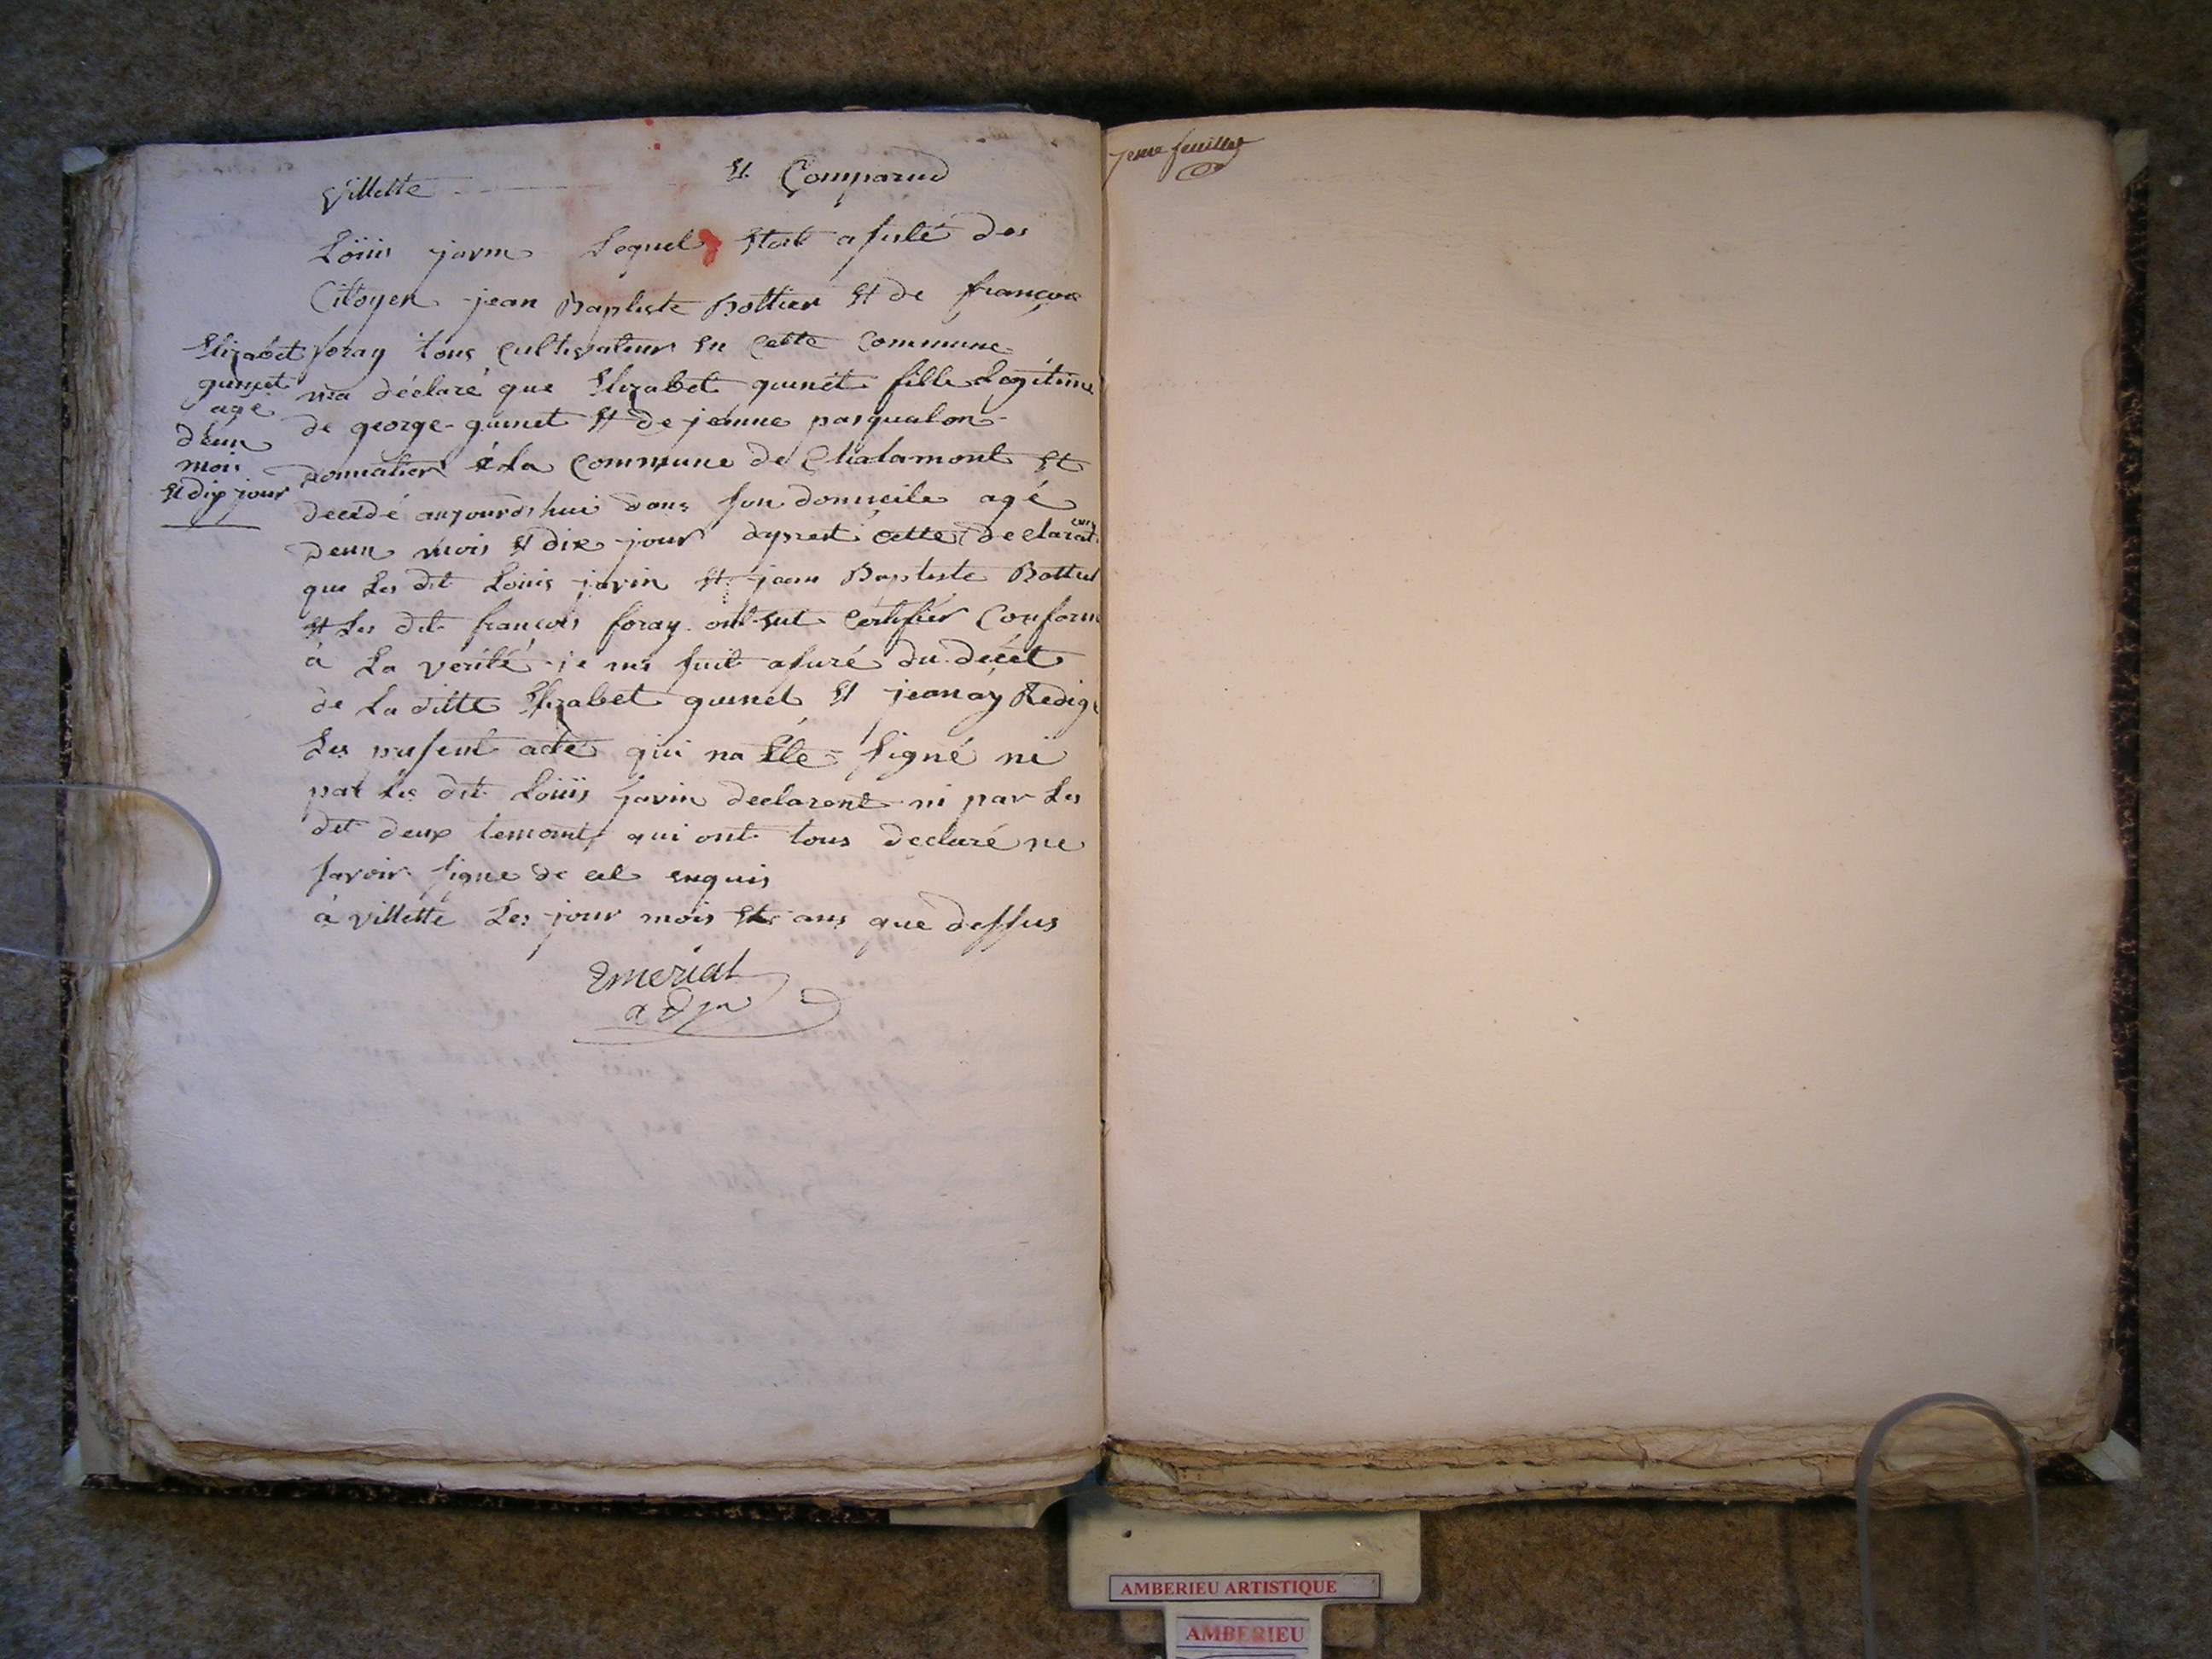 Villette - - - - - Et Comparud
Loüis javin Lequel Etoit asisté des
Citoyen jean Baptiste Bottier Et de françois
foray tous Cultivateur En Cette Commune
ma déclaré que Elizabet guinet fille Legitime
de george guinet Et de jeanne pasqualon
Donnatier à La Commune de Chalamont Et
decedé aujourdhui dans son domicile agé
deun mois Et dix jour dapres Cette declarat
que Les dit Louis javin Et jean Baptiste Bottier
Et Les dit françois foray ont Certifier Conform
à La verité je me suit asuré du decet
de La ditte Elizabet guinet Et jean ay Redigé
Les present acte qui na Ete signé ni
par Les dit Loüis javin declarent ni par Les
dit deux temoint qui ont tous declaré ne
savoir signe de cel enquis
à villette Les jour mois Et ans que dessus
Emeriat
Elizabet
guinet
agé
deun
mois
Et dix jour
7eme feuillet
AMBERIEU ARTISTIQUE
AMBERIEU